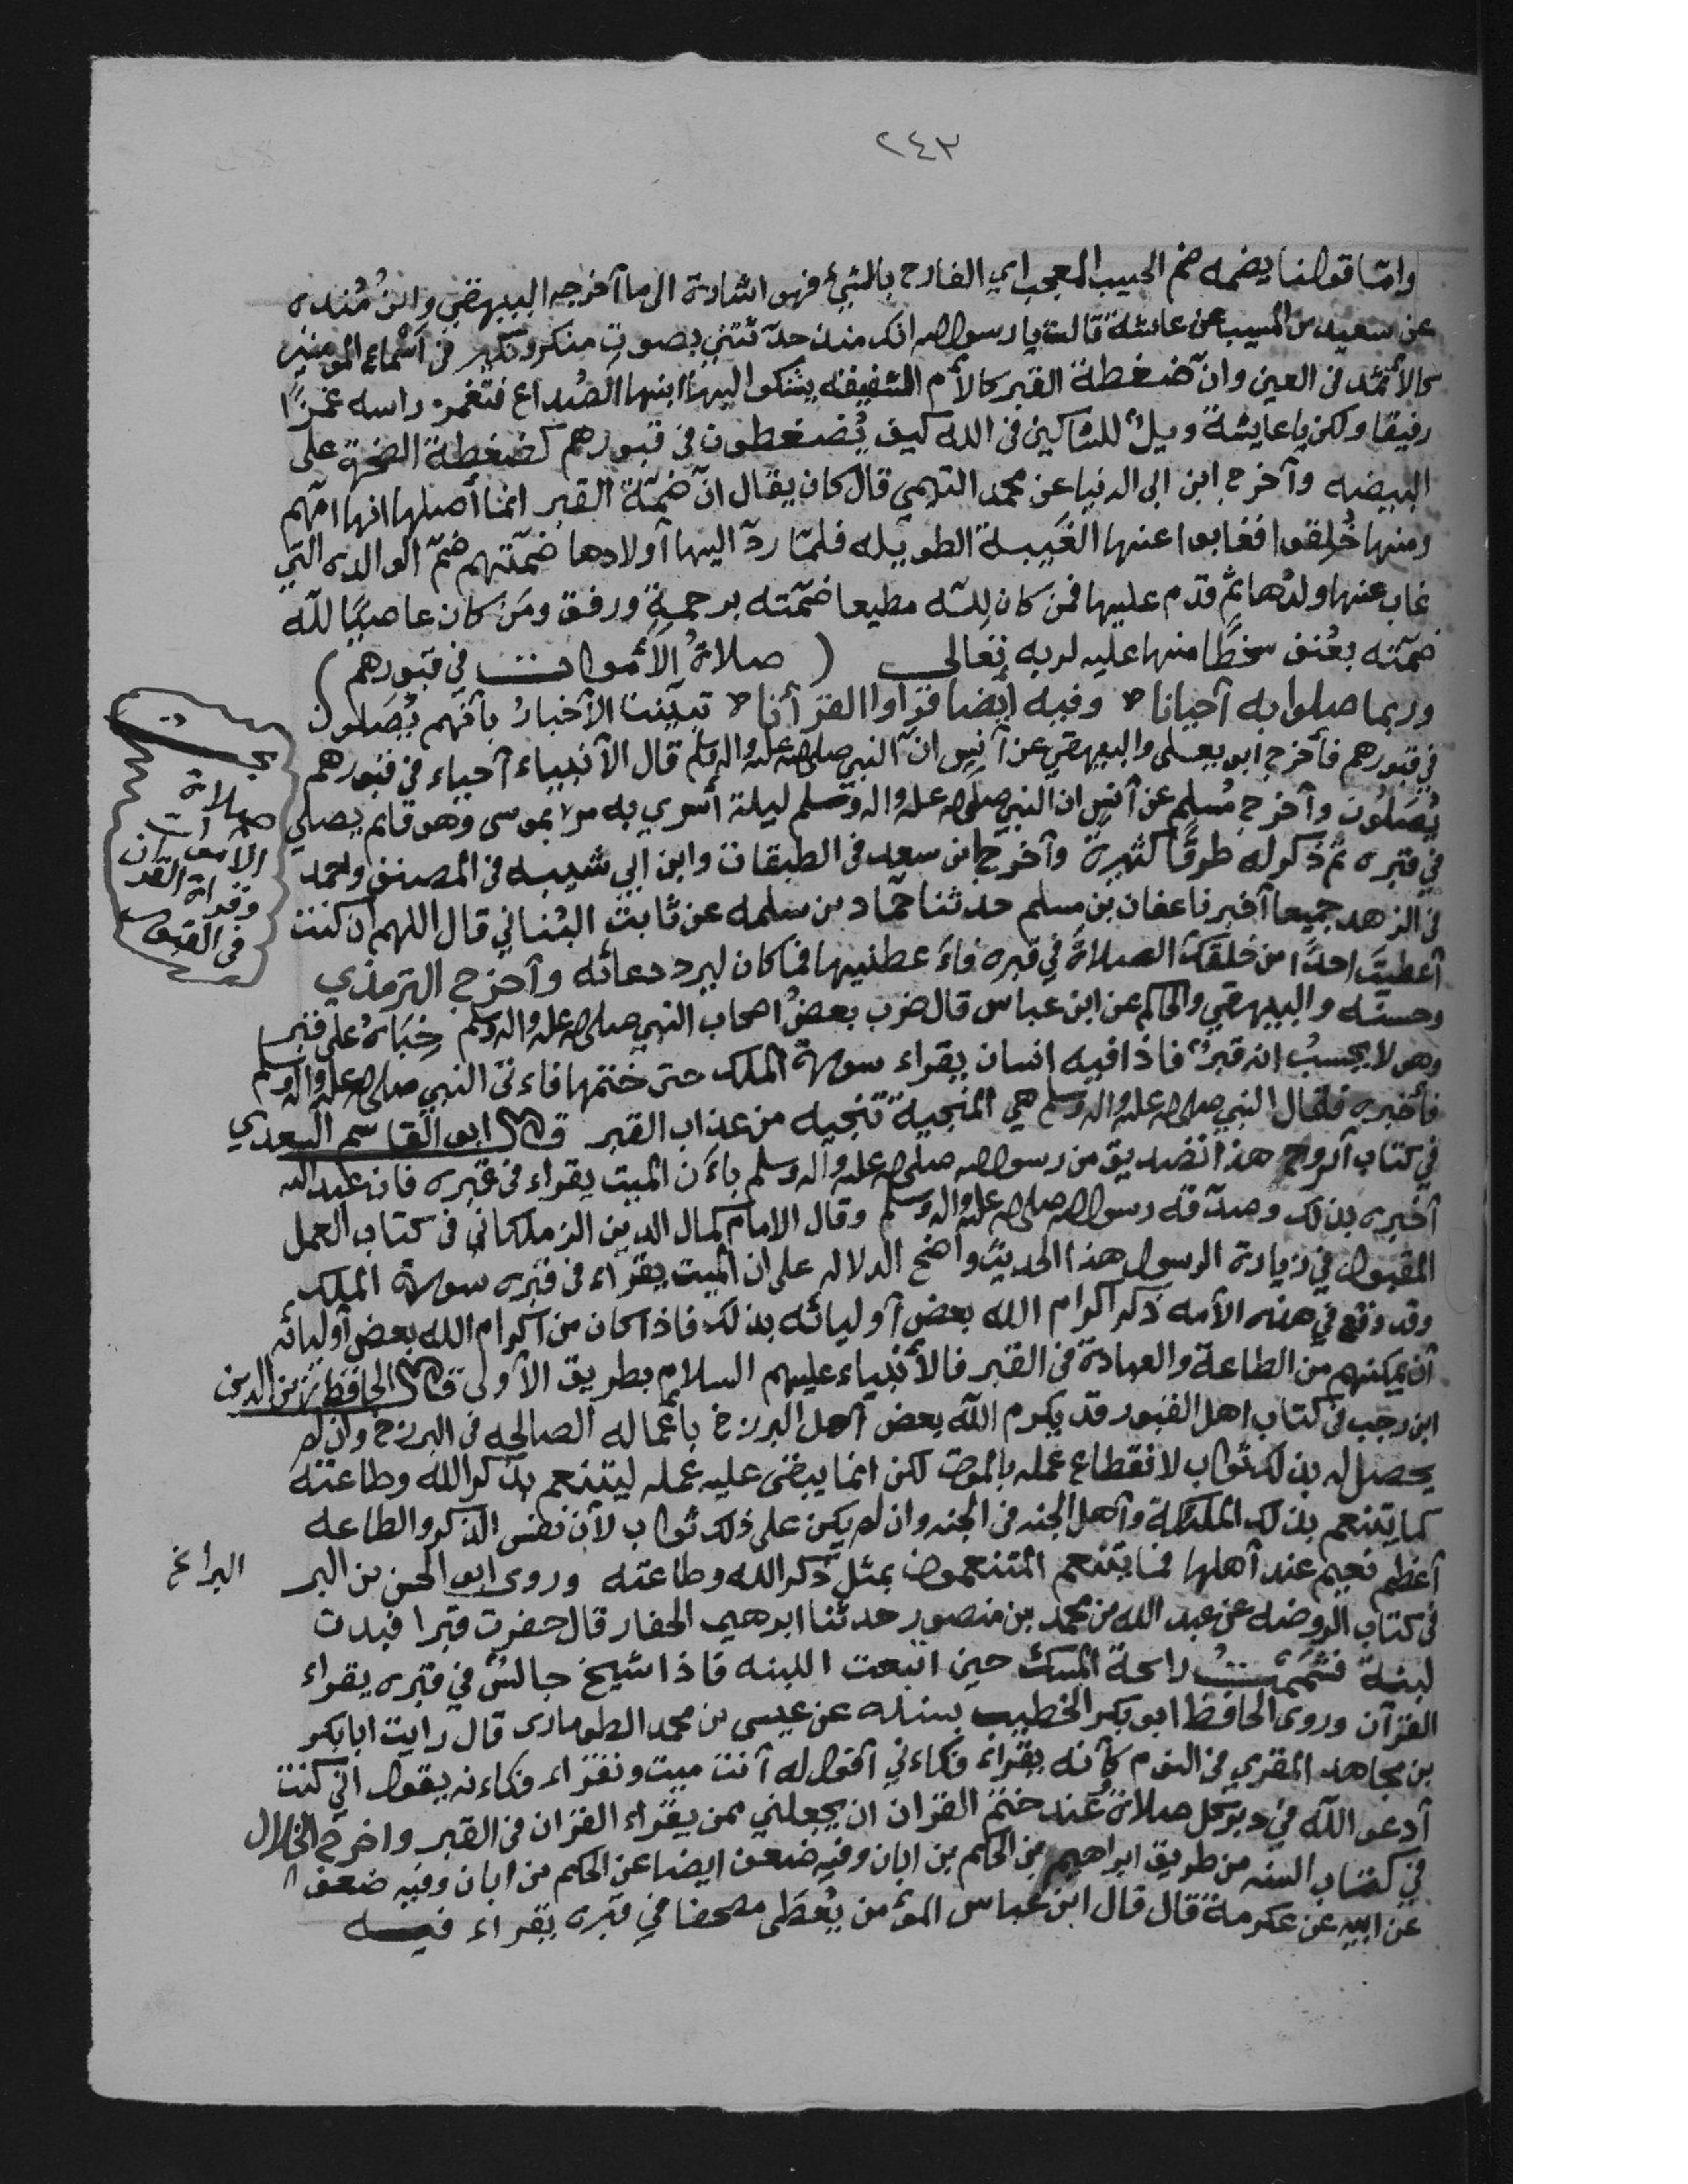 ٢٤٣
وامّا قولنا يضمه ضم الحبيب المعجب اي الفارح بالشيئ فهو اشارة الى ما آخرجه البيهقي وابنُ مُنده
عن سعيد بن المسيب عن عائشة قالت يا رسول الله انك منذ حدّثتني بصوتِ منكر ونكير في آسماع المومنين
كالأثمد في العين وانّ ضغطة القبر كالأم الشفيقه يشكوا اليها ابنها الصُداع فتغمز راسه غمزًا
رفيقا ولكن يا عايشة ويلٌ للشاكين في الله كيف يُضغطون في قبورهم كضغطة الصخرة على
البيضه وآخرج ابن ابى الدنيا عن محمد التيمي قال كان يقال انّ ضمّة القبر انما أصلها انها امّهم
ومنها خُلِقوا فغابوا عنها الغَيبة الطويله فلمّا ردّ اليها آولادها ضمّتهم ضمّ الوالده التي
غاب عنها ولدُها ثم قدم عليها فمن كان لِلّه مطيعا ضمّته برحمةٍ ورفق ومَن كان عاصيًا لله
ضمّته بعُنف سخطًا منها عليه لربه تعالى ( صلاةُ الأموات في قبورهم )
وربما صلوا به آحيانا وفيه ايضا قرٲوا القرآنا تبيّنت الأخبارُ بآنهم يُصَلون
في قبورهم فأخرج ابو يعلى والبيهقي عن آنس انّ النبي صلى الله عليه واله وسلم قال الآنبياء آحياء في قبورهم
يُصَلون وآخرج مُسلم عن آنس ان النبي صلى الله عليه واله وسلم ليلة أسري به مر بموسى وهو قائم يصلي
في قبره ثم ذكر له طرقًا كثيرة وآخرج ابن سعد في الطبقات وابن ابي شيبه في المصنف واحمد
في الزهد جميعا آخبرنا عفان بن مسلم حدثنا حمّاد بن سلمه عن ثابت البُناني قال اللهم ان كنت
آعطيتَ احدًا من خلقكَ الصلاةَ في قبره فاءَعطنيها فما كان ليرد دعائه وآخرج الترمذي
وحسنه والبيهقي والحاكم عن ابن عباس قال ضرب بعضُ اصحاب النبي صلى الله عليه واله وسلم خِبَاهُ على قبر
وهو لا يحسبُ انه قبرٌ فاذا فيه انسان يقراء سورة الملك حتى ختمها فاءتى النبي صلى الله عليه واله وسلم
فأخبره فقال النبي صلى الله عليه واله وسلم هي المنجية تنجيه من عذاب القبر قال ابو القاسم السعدي
في كتاب الروح هذا تصديق من رسول الله صلى الله عليه واله وسلم باءَن الميت يقراء في قبره فان عبد الله
آخبره بذلك وصدّقه رسول الله صلى الله عليه واله وسلم وقال الامام كمال الدين الزملكاني في كتاب العمل
المقبول في زيارة الرسول هذا الحديث واضح الدلاله على ان الميت يقراء في قبره سورة الملك
وقد وقع في هذه الأمه ذكر اكرام الله بعض آوليائه بذلك فاذا كان من آكرام الله بعض آوليائه
آن يمكنهم من الطاعة والعبادة في القبر فالأنبياء عليهم السلام بطريق الآولى قال الحافظ زين الدين
ابن رجب في كتاب اهل القبور قد يكرم اللّه بعض آهل البرزخ بأعماله الصالحه في البرزخ وان لم
يحصل له بذلك ثواب لانقطاع عمله بالموت لكن انما يبقى عليه عمله ليتنعم بذكر الله وطاعته
كما يتنعم بذلك الملئكة وآهل الجنه في الجنه وان لم يكن على ذلك ثواب لآن نفس الذكر والطاعه
آعظم نعيم عند آهلها فما يتنعم المتنعمون بمثل ذكر الله وطاعته وروى ابو الحسن بن البر
البرا
في كتاب الروضه عن عبد الله بن محمد بن منصور حدثنا ابرهيم الحفار قال حفرت قبرا فبدت
لبنة فشَمَمْتُ رائحة المسك حين انبعت اللبنه فاذا شيخ جالسٌ في قبره يقراء
القرآن وروى الحافظ ابو بكر الخطيب بسنده عن عيسى بن محمد الطومارى قال رايت ابا بكر
بن مجاهد المقري في النوم كأنه يقراء فكاءني آقول له آنت ميت وتقراء فكاءنه يقول اني كنت
آدعو اللّه في دبر كل صلاة وعند ختم القران ان يجعلني ممن يقراء القران في القبر واخرج الخلال
في كتاب السنه من طريق ابراهيم بن الحكم بن ابان وفيه ضعف ايضا عن الحكم بن ابان وفيه ضعف
عن ابيه عن عكرمة قال قال ابن عباس المؤمن يُعطَى مصحفا في قبره يقراء فيه
صلاة
الاموات
وقراة القران
في القبور